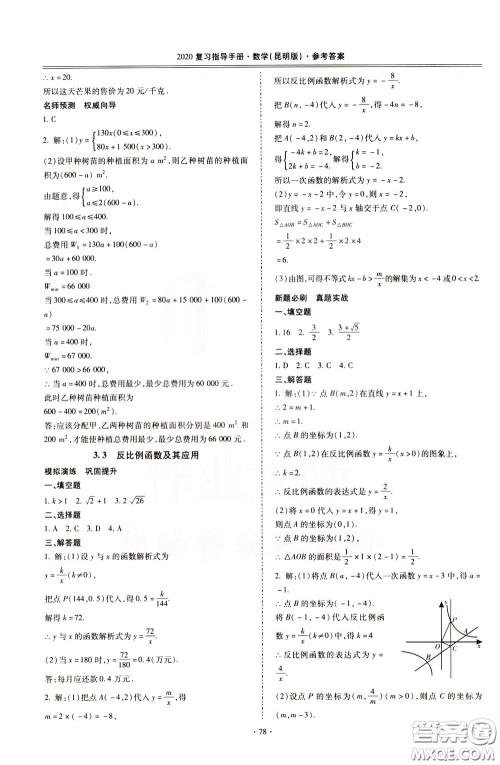 2020 复习指导手册·数学(昆明版)·参考答案
∴ x=20.
所以这天芒果的售价为 20 元/千克.
名师预测 权威向导
1. C
2. 解:(1)y={130x(0≤x≤300), 80x+1 500(x>300).
(2)设甲种树苗的种植面积为 a m², 则乙种树苗的种植面积为(600-a) m².
由题意,得{a≥100, a≤2(600-a).
解得 100≤a≤400.
当 100≤a<300 时,
总费用 W₁=130a+100(600-a)
=30a+60 000.
当 a=100 时,
Wmin=63 000
当 300≤a≤400 时,总费用 W₂=80a+15 000+100(600-a)
=75 000-20a.
当 a=400 时,
Wmin=67 000.
∵ 67 000>66 000,
∴ 当 a=400 时,总费用最少,最少总费用为 60 000 元.
此时乙种树苗的种植面积为
600-400=200(m²).
答:应该分配甲、乙两种树苗的种植面积分别是 400 m² 和
200 m², 才能使种植总费用最少,最少总费用为 66 000 元.
3.3 反比例函数及其应用
模拟演练 巩固提升
一.填空题
1. k>1 2. √2+1 3. √26
二.选择题
1. A 2. D 3. C 4. A
三.解答题
1. 解:(1)设 y 与 x 的函数解析式为
y=k/x(k≠0),
把点 P(144,0.5)代入,得 0.5=k/144.
解得 k=72.
∴ y 与 x 的函数解析式为 y=72/x.
(2)当 x=180 时,y=72/180=0.4(万元).
答:每月应还款 0.4 万元.
2. 解:(1)把点 A(-4,2)代入 y=m/x,得
m=2×(-4)=-8,
所以反比例函数解析式为 y=-8/x.
把 B(n,-4)代入 y=-8/x,得-4n=-8,
解得 n=2.
把 A(-4,2)和 B(2,-4)代入 y=kx+b,
得{-4k+b=2, 2k+b=-4. 解得{k=-1, b=-2.
所以一次函数的解析式为 y=-x-2.
(2)y=-x-2 中,令 y=0,则 x=-2,
即直线 y=-x-2 与 x 轴交于点 C(-2,0).
S△AOB=S△AOC+S△BOC
=1/2×2×2+1/2×2×4
=6.
(3)由图,可得不等式 kx-b>m/x 的解集为 x<-4 或0<x<2.
新题必刷 真题实战
一.填空题
1. 16 2. 3/2 3. (3+√5)/2
二.选择题
1. D 2. D 3. D 4. C
三.解答题
1. 解:(1)∵ 点 B(m,2)在直线 y=x+1 上,
∴ 2=m+1.
∴ m=1.
∴ 点 B 的坐标为(1,2).
∵ 点 B(1,2)在反比例函数 y=k/x(x>0)的图象上,
∴ k=2.
∴ 反比例函数的表达式是 y=2/x.
(2)将 x=0 代入 y=x+1,得 y=1,
则点 A 的坐标为(0,1).
∵ 点 B 的坐标为(1,2),
∴ △AOB 的面积是 1/2×1×1=1/2.
2. 解:(1)将点 B(a,-4)代入一次函数 y=x-3 中,得 a=-1.
∴ B 的坐标为(-1,-4).
将 B(-1,-4)代入反比例函数
y=k/x(k≠0)中,得 k=4.
∴ 反比例函数的表达式为 y=4/x.
(2)设点 P 的坐标为(m,4/m)(m>0),则点 C 的坐标为
(m,m-3).
x
y
O
P
A
B
C
· 78 ·